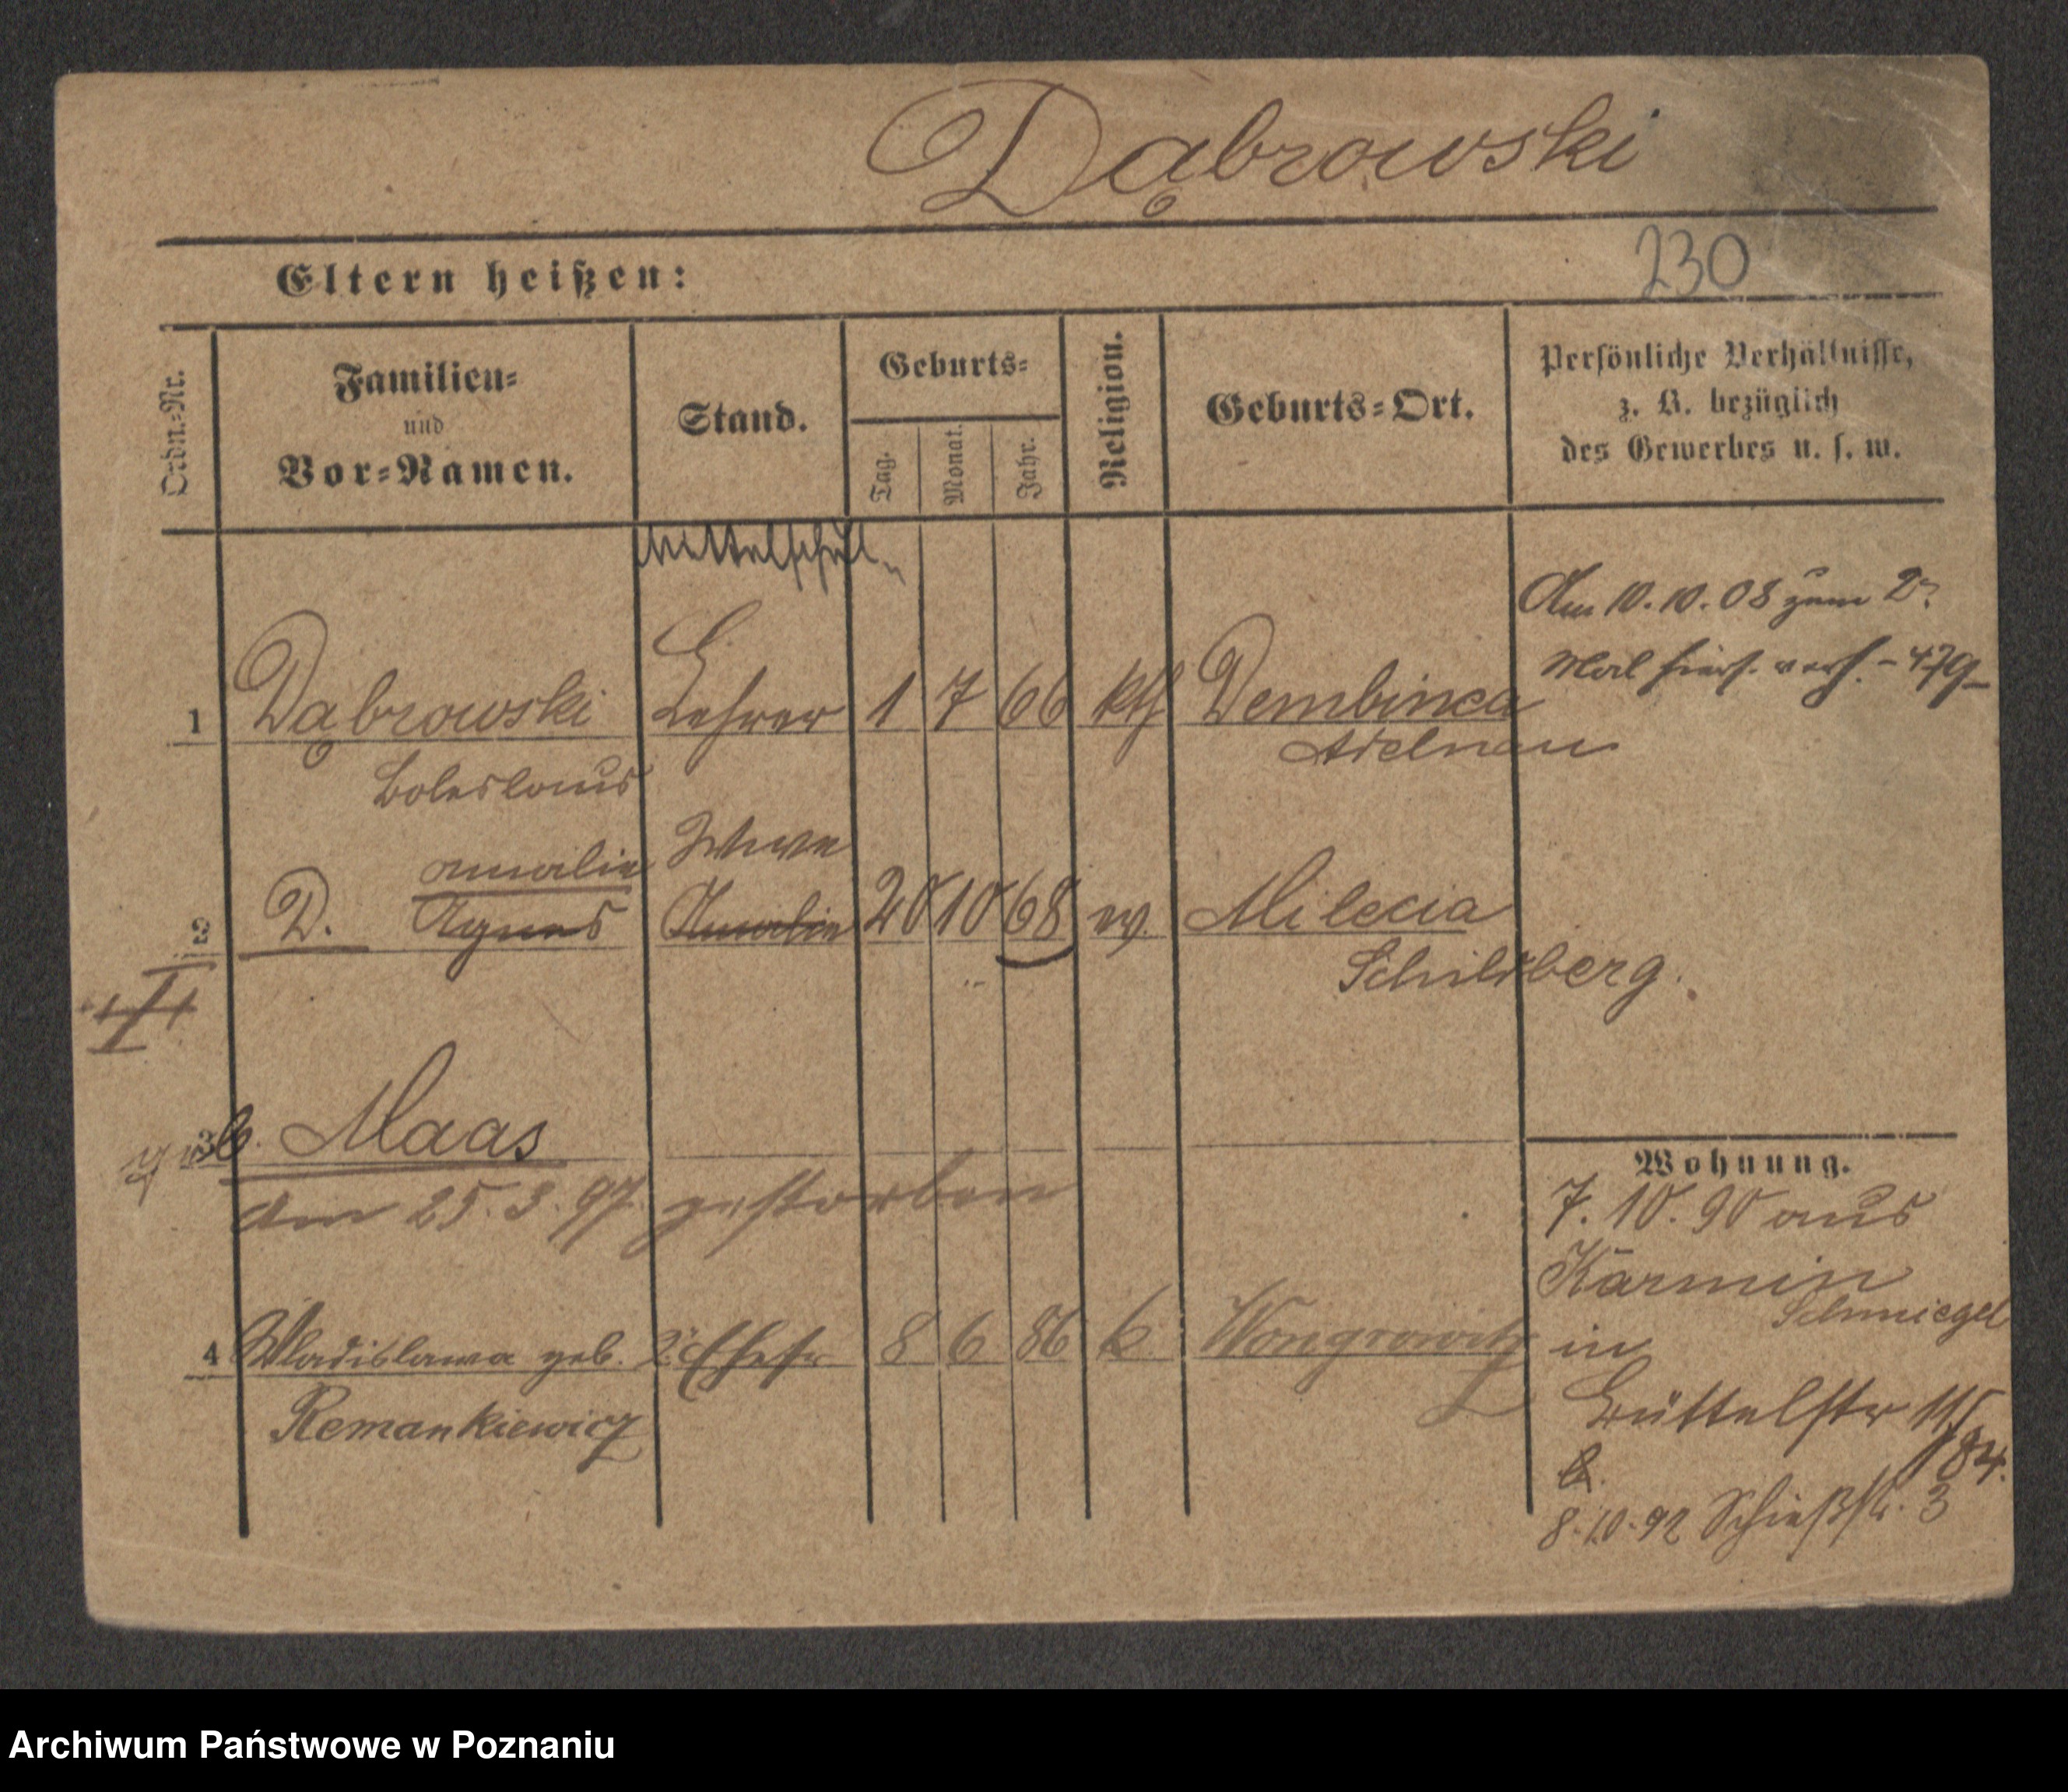 Dąbrowski
230
Eltern heißen:
Ordn.-Nr.
Familien-
und
Vor-Namen.
Stand.
Geburts-
Tag.
Monat.
Jahr.
Religion.
Geburts-Ort.
Persönliche Verhältnisse,
z. B. bezüglich
des Gewerbes u. s. w.
Mittelschul-
Am 10.10.08 zum 2.
Mal verh. - 479-
1 Dąbrowski Lehrer 1 7 66 kth Dembinca
Adelnau
Boleslaus
Amalie
2 D. Agnes Amalie 20 10 68 ev. Milecia
Schildberg.
II
3 geb. Maas
am 25.3.97 gestorben
Wohnung.
7.10.90 aus
Karmin
Schmiegel
in
4 Wladislawa geb. 2. Ehefr 8 6 86 k. Wongrowitz
Remankiewicz
Büttelstr 11
8.10.92 Schießstr. 3
Archiwum Państwowe w Poznaniu